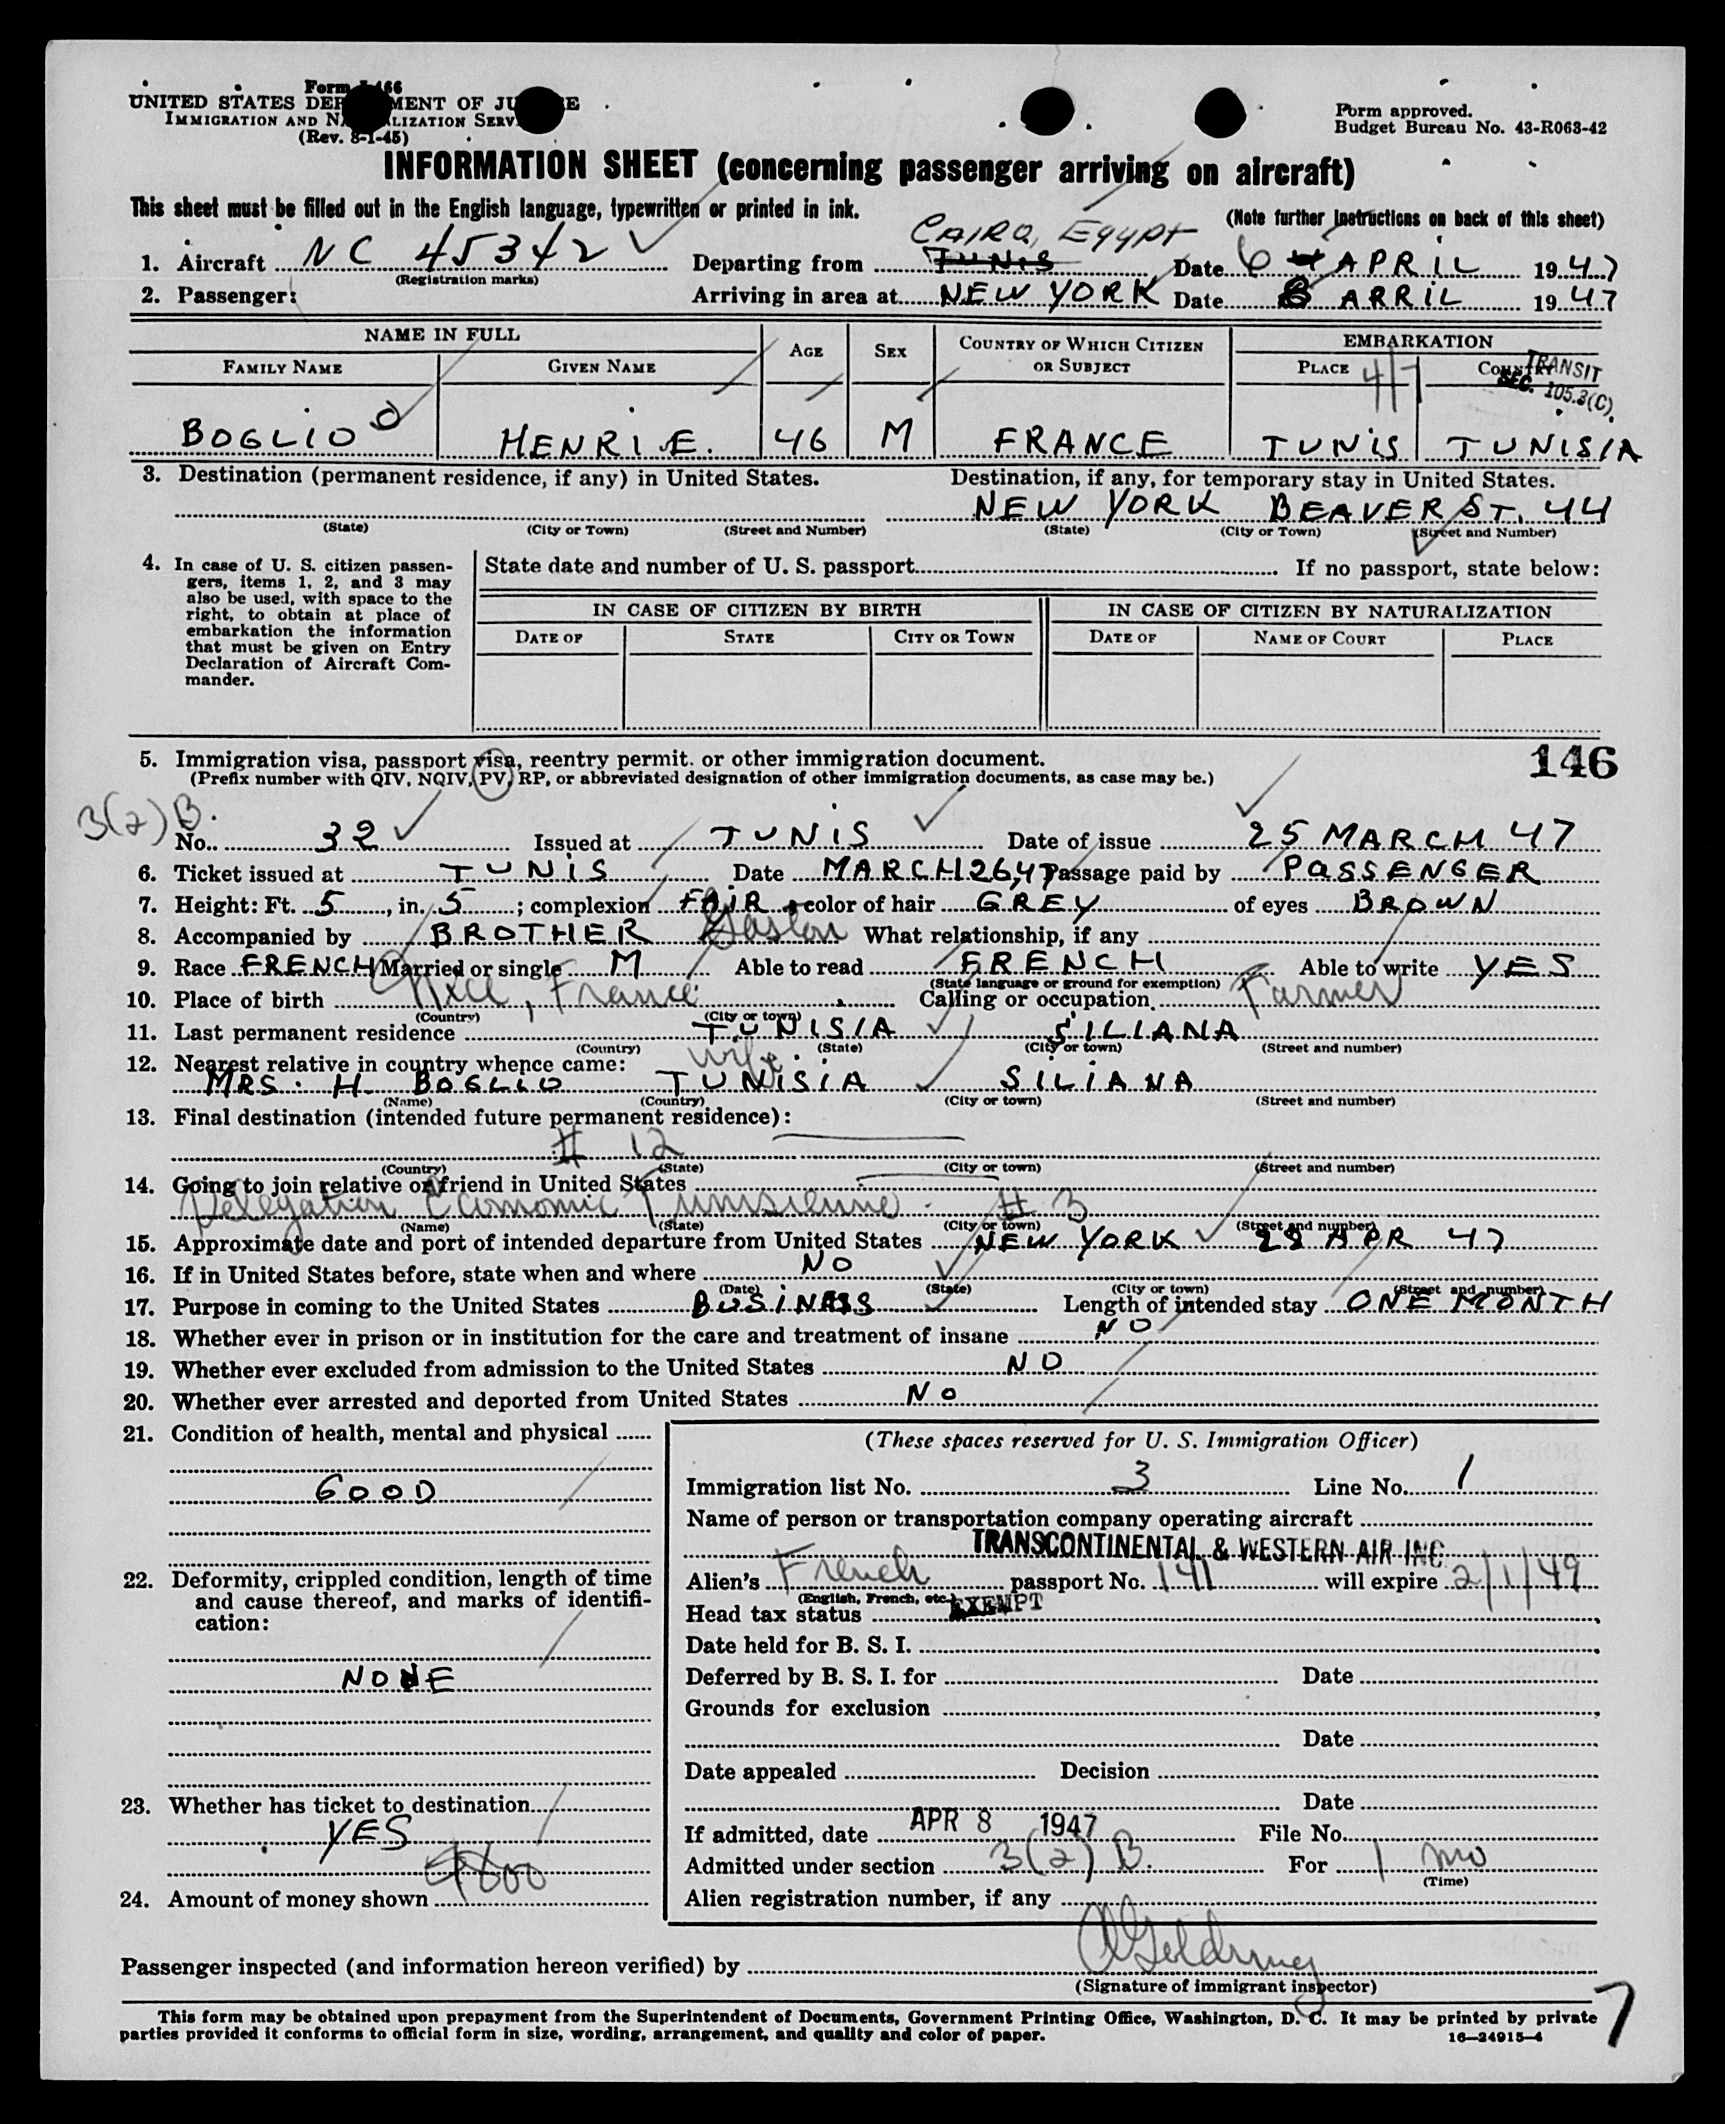 Form I-466
UNITED STATES DEPARTMENT OF JUSTICE
IMMIGRATION AND NATURALIZATION SERVICE
(Rev. 8-1-45)
Form approved.
Budget Bureau No. 43-R063-42
INFORMATION SHEET (concerning passenger arriving on aircraft)
This sheet must be filled out in the English language, typewritten or printed in ink.
(Note further instructions on back of this sheet)
CAIRO, Egypt
1. Aircraft NC 45342 Departing from TUNIS Date 6 4 APRIL 1947
(Registration marks)
2. Passenger: Arriving in area at NEW YORK Date 8 APRIL 1947
NAME IN FULL AGE SEX COUNTRY OF WHICH CITIZEN OR SUBJECT EMBARKATION
FAMILY NAME GIVEN NAME PLACE COUNTRY
4/7 TRANSIT
SEC. 105.3(C).
BOGLIO HENRI E. 46 M FRANCE TUNIS TUNISIA
3. Destination (permanent residence, if any) in United States. Destination, if any, for temporary stay in United States.
NEW YORK BEAVER ST. 44
(State) (City or Town) (Street and Number) (State) (City or Town) (Street and Number)
4. In case of U. S. citizen passen-
gers, items 1, 2, and 3 may
also be used, with space to the
right, to obtain at place of
embarkation the information
that must be given on Entry
Declaration of Aircraft Com-
mander.
State date and number of U. S. passport If no passport, state below:
IN CASE OF CITIZEN BY BIRTH IN CASE OF CITIZEN BY NATURALIZATION
DATE OF STATE CITY OR TOWN DATE OF NAME OF COURT PLACE
5. Immigration visa, passport visa, reentry permit. or other immigration document.
146
(Prefix number with QIV, NQIV, PV, RP, or abbreviated designation of other immigration documents, as case may be.)
3(2)B.
No. 32 Issued at TUNIS Date of issue 25 MARCH 47
6. Ticket issued at TUNIS Date MARCH 26, 47 Passage paid by PASSENGER
7. Height: Ft. 5, in. 5; complexion FAIR color of hair GREY of eyes BROWN
8. Accompanied by BROTHER Gaston What relationship, if any
9. Race FRENCH Married or single M Able to read FRENCH Able to write YES
(State language or ground for exemption)
10. Place of birth Nice, France Calling or occupation Farmer
(Country) (City or town)
11. Last permanent residence TUNISIA SILIANA
(Country) (State) (City or town) (Street and number)
12. Nearest relative in country whence came: wife
MRS. H. BOGLIO TUNISIA SILIANA
(Name) (Country) (City or town) (Street and number)
13. Final destination (intended future permanent residence):
# 12
(Country) (State) (City or town) (Street and number)
14. Going to join relative or friend in United States
Delegation Economic Tunisienne. # 3
(Name) (State) (City or town) (Street and number)
15. Approximate date and port of intended departure from United States NEW YORK 28 APR 47
16. If in United States before, state when and where NO
(Date) (State) (City or town) (Street and number)
17. Purpose in coming to the United States BUSINESS Length of intended stay ONE MONTH
18. Whether ever in prison or in institution for the care and treatment of insane NO
19. Whether ever excluded from admission to the United States NO
20. Whether ever arrested and deported from United States NO
21. Condition of health, mental and physical
GOOD
22. Deformity, crippled condition, length of time
and cause thereof, and marks of identifi-
cation:
NONE
23. Whether has ticket to destination
YES
24. Amount of money shown $600
(These spaces reserved for U. S. Immigration Officer)
Immigration list No. 3 Line No. 1
Name of person or transportation company operating aircraft
TRANSCONTINENTAL & WESTERN AIR INC
Alien's French passport No. 141 will expire 2/1/49
(English, French, etc.)
Head tax status EXEMPT
Date held for B. S. I.
Deferred by B. S. I. for Date
Grounds for exclusion
Date
Date appealed Decision
Date
If admitted, date APR 8 1947 File No.
Admitted under section 3(2)B. For 1 mo
(Time)
Alien registration number, if any
Passenger inspected (and information hereon verified) by
(Signature of immigrant inspector)
This form may be obtained upon prepayment from the Superintendent of Documents, Government Printing Office, Washington, D. C. It may be printed by private
parties provided it conforms to official form in size, wording, arrangement, and quality and color of paper.
16—24915-4
7